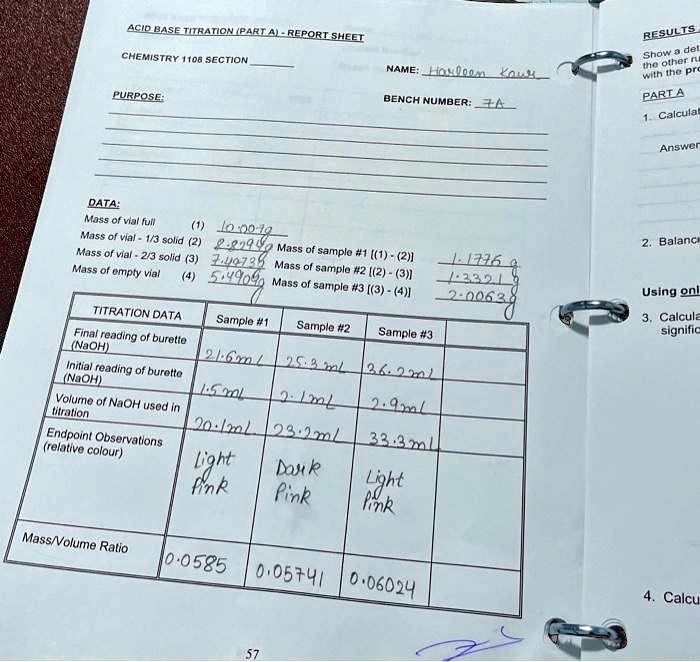 ACID BASE TITRATION (PART A) - REPORT SHEET
CHEMISTRY 1108 SECTION
NAME: Harleen Kaur
PURPOSE:
BENCH NUMBER: 7A
DATA:
Mass of vial full (1) 10.0070g
Mass of vial - 1/3 solid (2) 8.8294g Mass of sample #1 [(1) - (2)] 1.1776 g
Mass of vial - 2/3 solid (3) 7.4973g Mass of sample #2 [(2) - (3)] 1.3321 g
Mass of empty vial (4) 5.4909g Mass of sample #3 [(3) - (4)] 2.0063g
TITRATION DATA Sample #1 Sample #2 Sample #3
Final reading of burette
(NaOH) 21.6mL 25.3mL 36.2mL
Initial reading of burette
(NaOH) 1.5mL 2.1mL 2.9mL
Volume of NaOH used in
titration 20.1mL 23.2mL 33.3mL
Endpoint Observations
(relative colour) Light Pink Dark Pink Light Pink
Mass/Volume Ratio 0.0585 0.05741 0.06024
57
RESULTS
Show a
the other
with the
PART A
1.
Answer
2.
Using
3.
4.